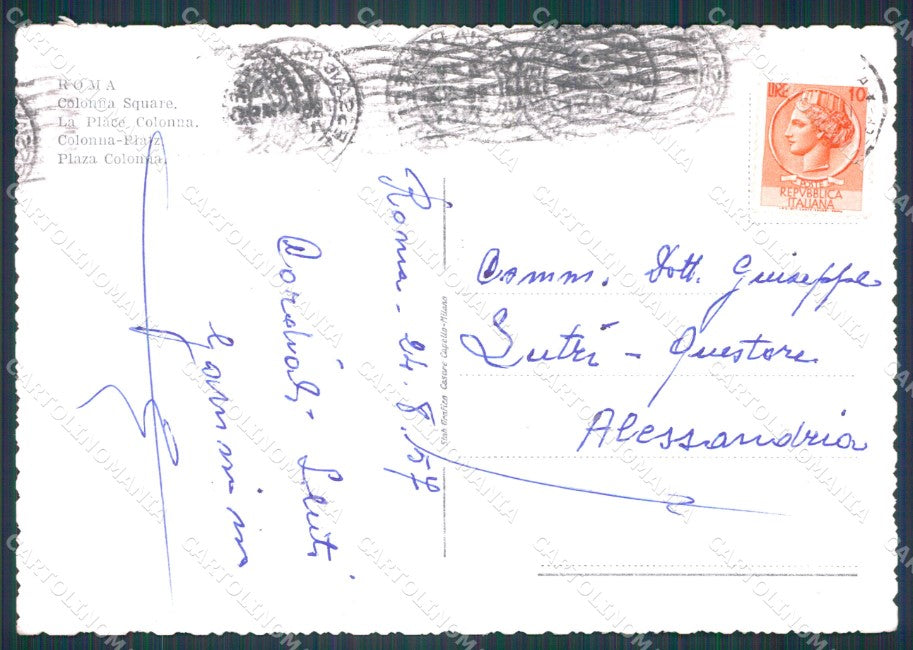 ROMA
Colonna Square.
La Place Colonna.
Colonna-Platz.
Plaza Colonna.
LIRE 10
POSTE
REPVBBLICA
ITALIANA
Roma - 24.8.'57
Cordiali - Saluti
Stab Grafico Cesare Capello-Milano
Comm. Dott. Giuseppe
Lutri - Questore
Alessandria
CARTOLINOMANIA